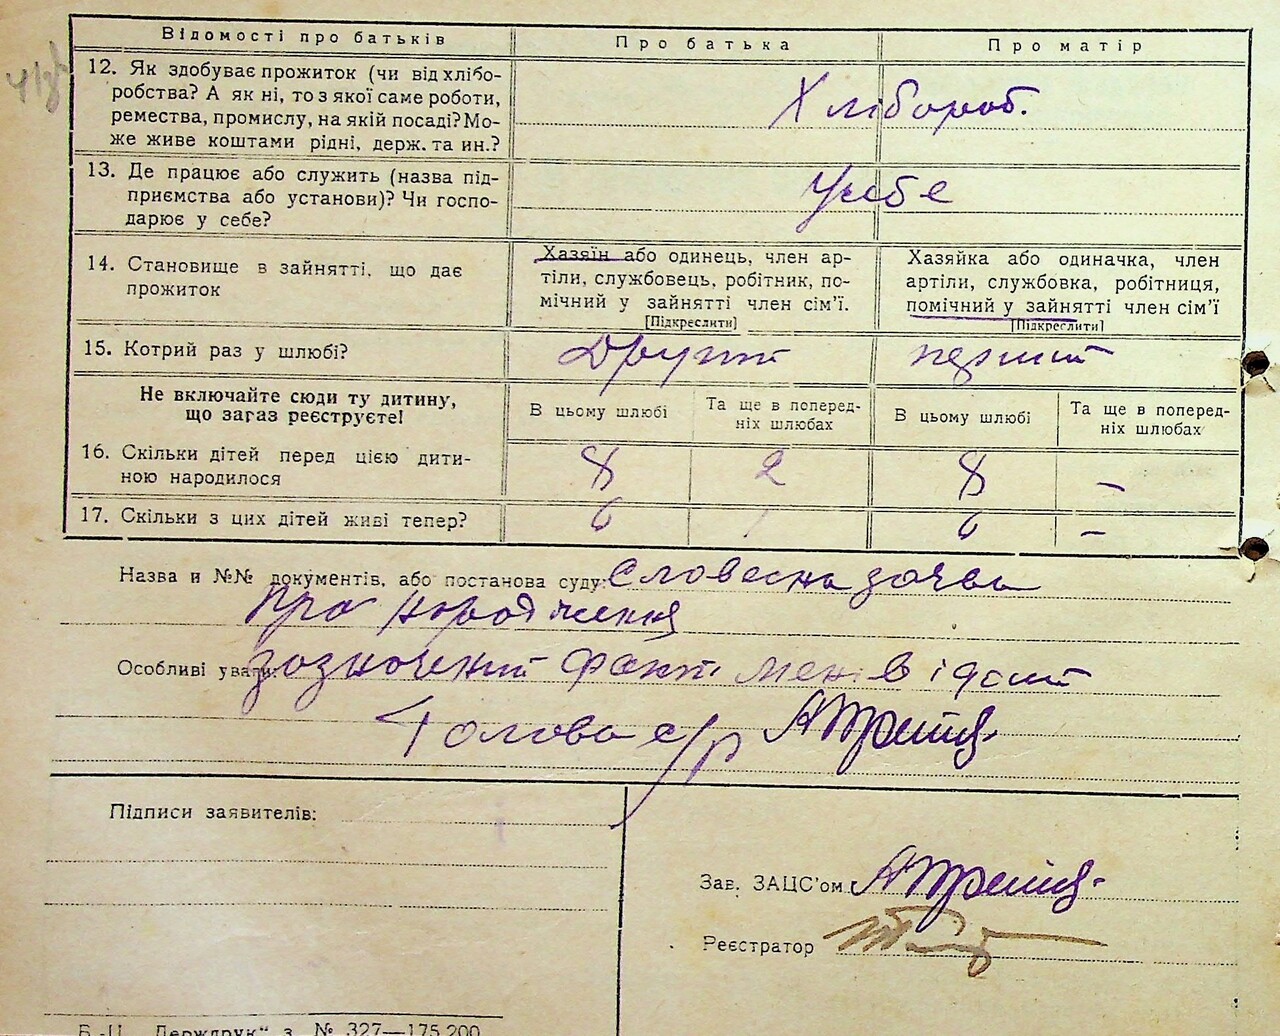 Відомості про батьків Про батька Про матір
12. Як здобуває прожиток (чи від хлібо-
робства? А як ні, то з якої саме роботи,
ремества, промислу, на якій посаді? Мо-
же живе коштами рідні, держ. та ин.?
Хлібороб.
13. Де працює або служить (назва під-
приємства або установи)? Чи госпо-
дарює у себе?
У себе
14. Становище в зайнятті, що дає
прожиток
Хазяїн або одинець, член ар-
тіли, службовець, робітник, по-
мічний у зайнятті член сім’ї.
[Підкреслити]
Хазяйка або одиначка, член
артіли, службовка, робітниця,
помічний у зайнятті член сім’ї
[Підкреслити]
15. Котрий раз у шлюбі? Другий первий
Не включайте сюди ту дитину,
що загаз реєструєте!
В цьому шлюбі
Та ще в поперед-
ніх шлюбах
В цьому шлюбі
Та ще в поперед-
ніх шлюбах
16. Скільки дітей перед цією дити-
ною народилося
8 2 8 –
17. Скільки з цих дітей живі тепер? 6 1 6 –
Назва и №№ документів, або постанова суду: Словесна заява
про народження
Особливі уваги: зазначений факт мені відомий
Голова с/р
Підписи заявителів:
Зав. ЗАЦС’ом
Реєстратор
Б.-Ц. „Держдрук“ з. № 327—175.200